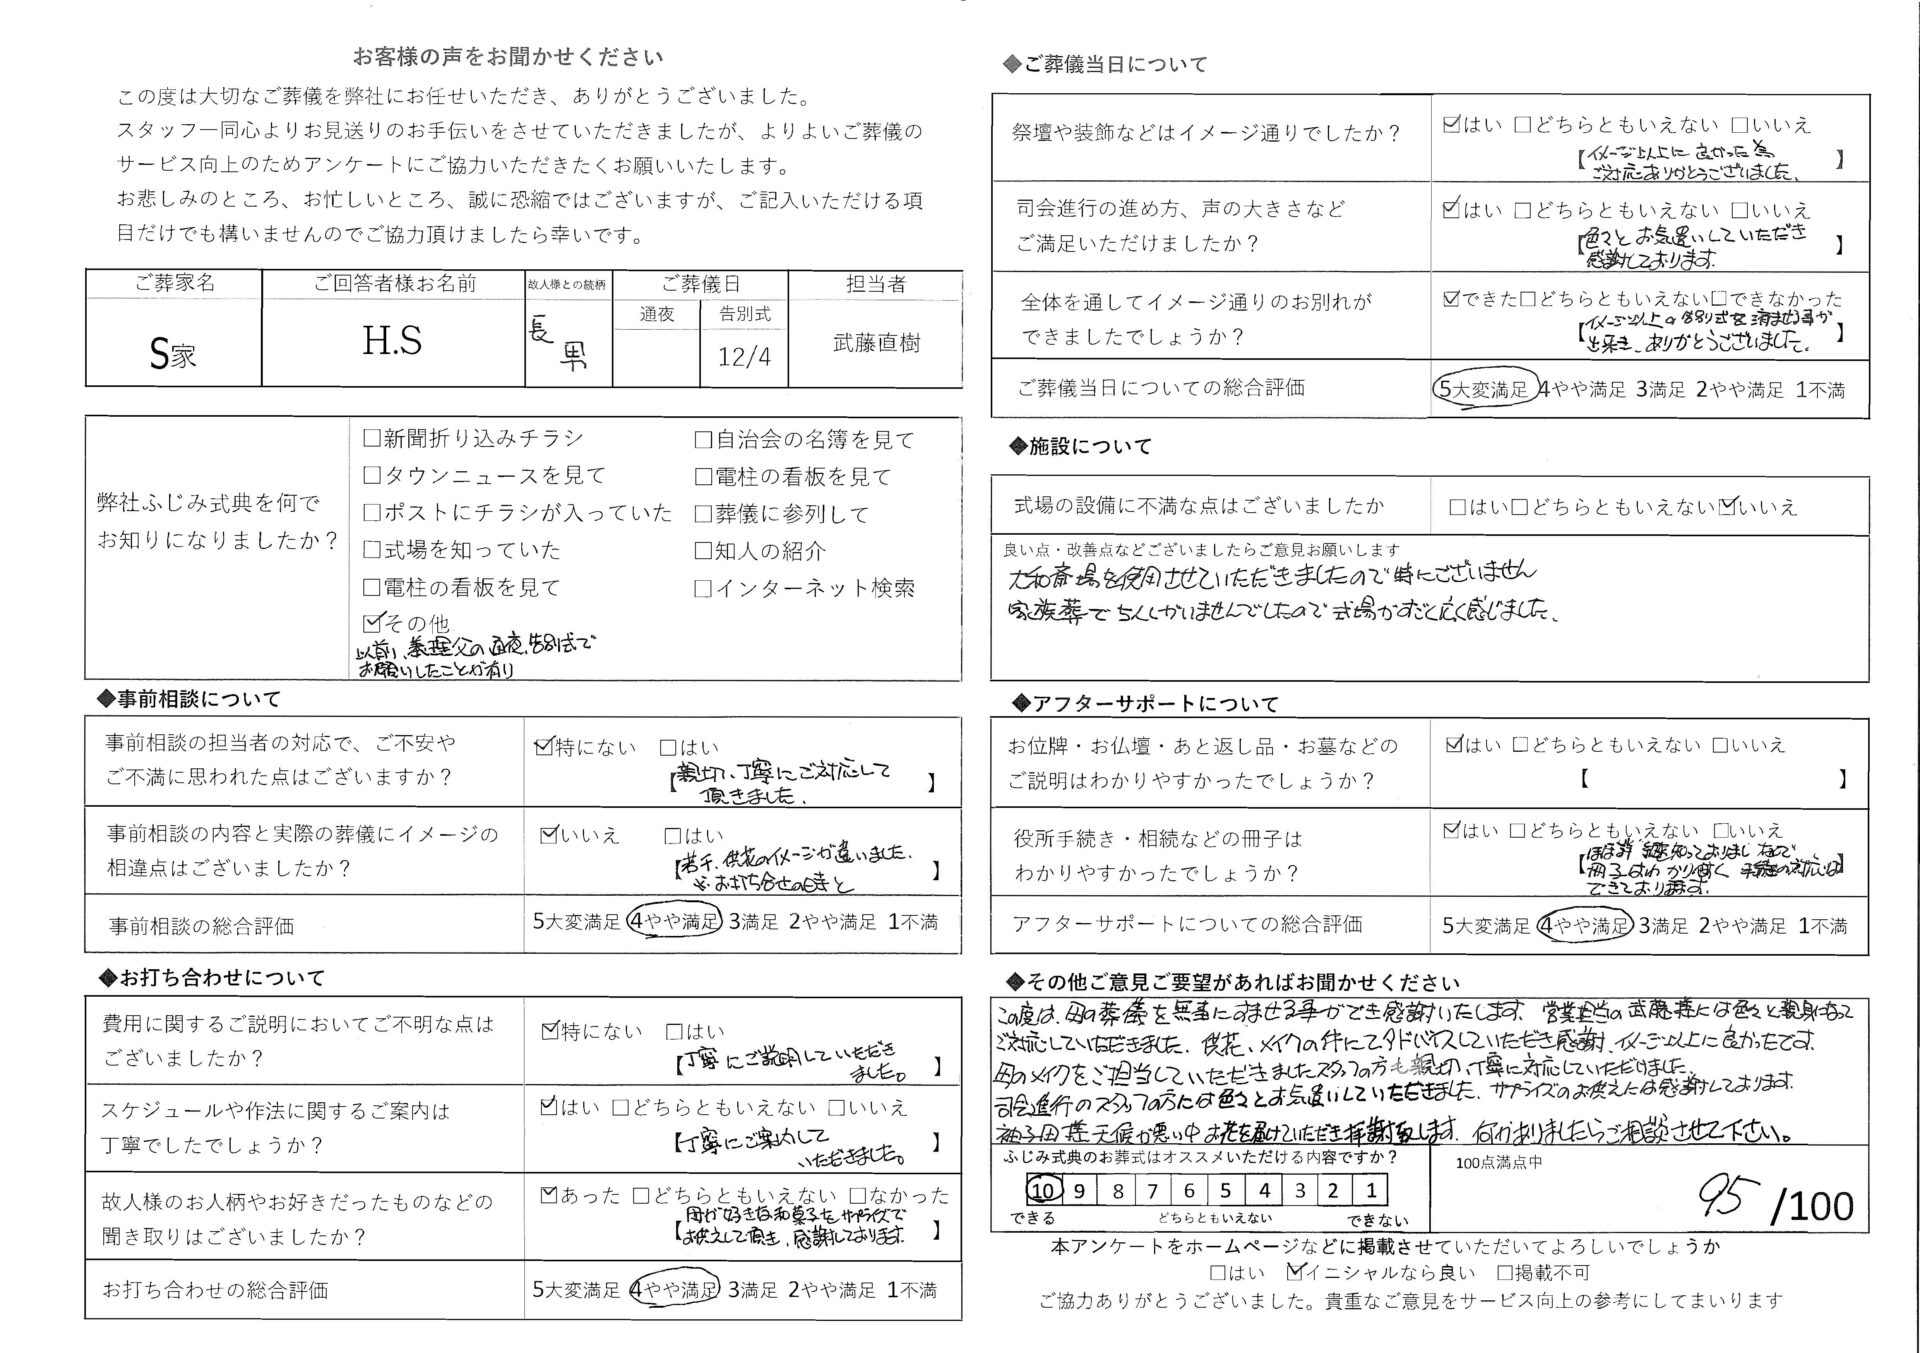 お客様の声をお聞かせください
この度は大切なご葬儀を弊社にお任せいただき、ありがとうございました。
スタッフ一同心よりお見送りのお手伝いをさせていただきましたが、よりよいご葬儀の
サービス向上のためアンケートにご協力いただきたくお願いいたします。
お悲しみのところ、お忙しいところ、誠に恐縮ではございますが、ご記入いただける項
目だけでも構いませんのでご協力頂けましたら幸いです。
ご葬家名 ご回答者様お名前 故人様との続柄 ご葬儀日 担当者
通夜 告別式
S家 H.S 長男 12/4 武藤直樹
弊社ふじみ式典を何で
お知りになりましたか？
☐新聞折り込みチラシ ☐自治会の名簿を見て
☐タウンニュースを見て ☐電柱の看板を見て
☐ポストにチラシが入っていた ☐葬儀に参列して
☐式場を知っていた ☐知人の紹介
☐電柱の看板を見て ☐インターネット検索
☑その他
以前、義理父の通夜、告別式で
お願いしたことが有り
◆事前相談について
事前相談の担当者の対応で、ご不安や
ご不満に思われた点はございますか？
☑特にない ☐はい
【親切、丁寧にご対応して
頂きました。】
事前相談の内容と実際の葬儀にイメージの
相違点はございましたか？
☑いいえ ☐はい
【若干、供花のイメージが違いました。
※お打ち合せの時と】
事前相談の総合評価 5大変満足 4やや満足 3満足 2やや満足 1不満
◆お打ち合わせについて
費用に関するご説明においてご不明な点は
ございましたか？
☑特にない ☐はい
【丁寧にご説明していただき
ました。】
スケジュールや作法に関するご案内は
丁寧でしたでしょうか？
☑はい ☐どちらともいえない ☐いいえ
【丁寧にご案内して
いただきました。】
故人様のお人柄やお好きだったものなどの
聞き取りはございましたか？
☑あった ☐どちらともいえない ☐なかった
【母が好きな和菓子をサプライズで
お供えして頂き、感謝しております。】
お打ち合わせの総合評価 5大変満足 4やや満足 3満足 2やや満足 1不満
◆ご葬儀当日について
祭壇や装飾などはイメージ通りでしたか？
☑はい ☐どちらともいえない ☐いいえ
【イメージ以上に良かった為
ご対応ありがとうございました。】
司会進行の進め方、声の大きさなど
ご満足いただけましたか？
☑はい ☐どちらともいえない ☐いいえ
【色々とお気遣いしていただき
感謝しております。】
全体を通してイメージ通りのお別れが
できましたでしょうか？
☑できた☐どちらともいえない☐できなかった
【イメージ以上の告別式を済ませる事が
出来き、ありがとうございました。】
ご葬儀当日についての総合評価 5大変満足 4やや満足 3満足 2やや満足 1不満
◆施設について
式場の設備に不満な点はございましたか ☐はい☐どちらともいえない☑いいえ
良い点・改善点などございましたらご意見お願いします
大和斎場を使用させていただきましたので特にございません
家族葬で5人しかいませんでしたので式場がすごく広く感じました。
◆アフターサポートについて
お位牌・お仏壇・あと返し品・お墓などの
ご説明はわかりやすかったでしょうか？
☑はい ☐どちらともいえない ☐いいえ
【 】
役所手続き・相続などの冊子は
わかりやすかったでしょうか？
☑はい ☐どちらともいえない ☐いいえ
【ほぼ 知っておりま
冊子はわかりやすく 手続の対応は
できております。】
アフターサポートについての総合評価 5大変満足 4やや満足 3満足 2やや満足 1不満
◆その他ご意見ご要望があればお聞かせください
この度は、母の葬儀を無事にすませる事ができ感謝いたします。営業担当の武藤様には色々と親身になって
ご対応していただきました。供花、メイクの件にてアドバイスしていただき感謝、イメージ以上に良かったです。
母のメイクをご担当していただきましたスタッフの方も親切、丁寧に対応していただけました。
司会進行のスタッフの方には色々とお気遣いしていただきました。サプライズのお供えには感謝しております。
袖子田様天候が悪い中お花を届けていただき拝謝致します。何かありましたらご相談させて下さい。
ふじみ式典のお葬式はオススメいただける内容ですか？
10 9 8 7 6 5 4 3 2 1
できる どちらともいえない できない
100点満点中
95/100
本アンケートをホームページなどに掲載させていただいてよろしいでしょうか
☐はい ☑イニシャルなら良い ☐掲載不可
ご協力ありがとうございました。貴重なご意見をサービス向上の参考にしてまいります